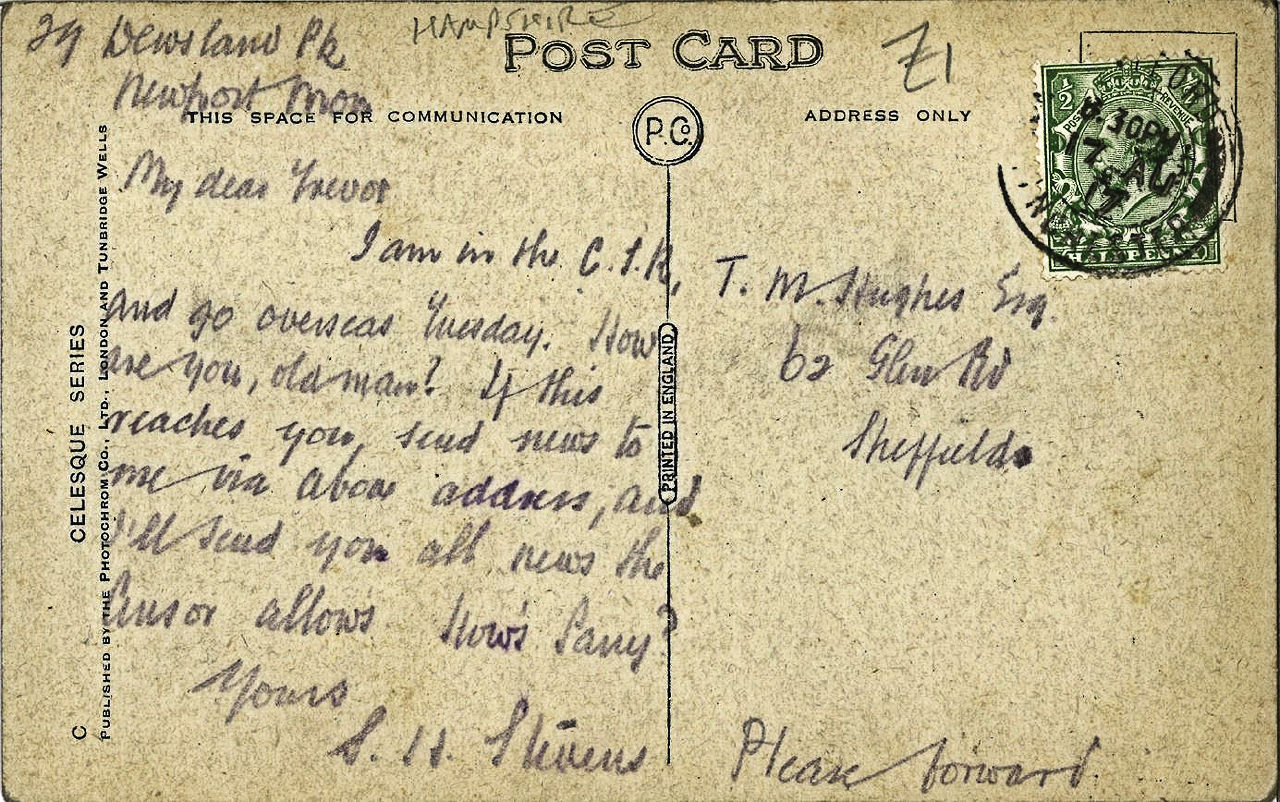 HAMPSHIRE
39 Dewsland Pk
Newport Mon
POST CARD
Z1
THIS SPACE FOR COMMUNICATION
P.Co.
ADDRESS ONLY
My dear Trevor
I am in the C.I.R,
and go overseas Tuesday. How
are you, old man? If this
reaches you, send news to
me via above address, and
I'll send you all news the
Censor allows How's Parry?
Yours
S. H. Stevens
T. M. Hughes Esq.
62 Glen Rd
Sheffield
Please forward.
PRINTED IN ENGLAND
C CELESQUE SERIES
PUBLISHED BY THE PHOTOCHROM CO., LTD., LONDON AND TUNBRIDGE WELLS
½
POSTAGE
REVENUE
HALFPENNY
6.30PM
17 AU
17